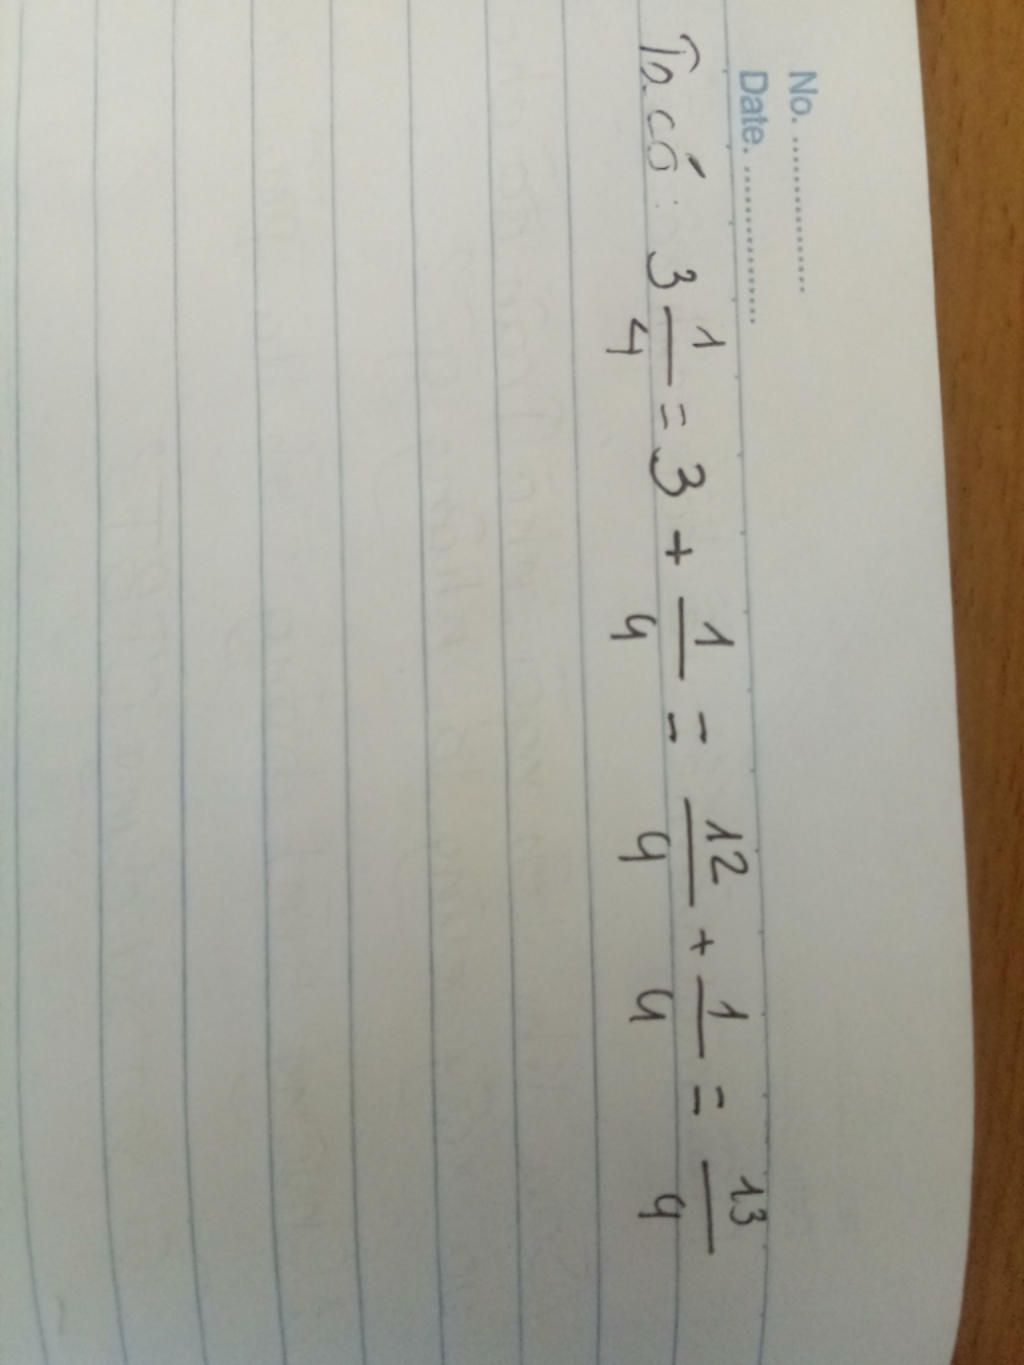 No. ................
Date. ................
Ta có: 3 1/4 = 3 + 1/4 = 12/4 + 1/4 = 13/4